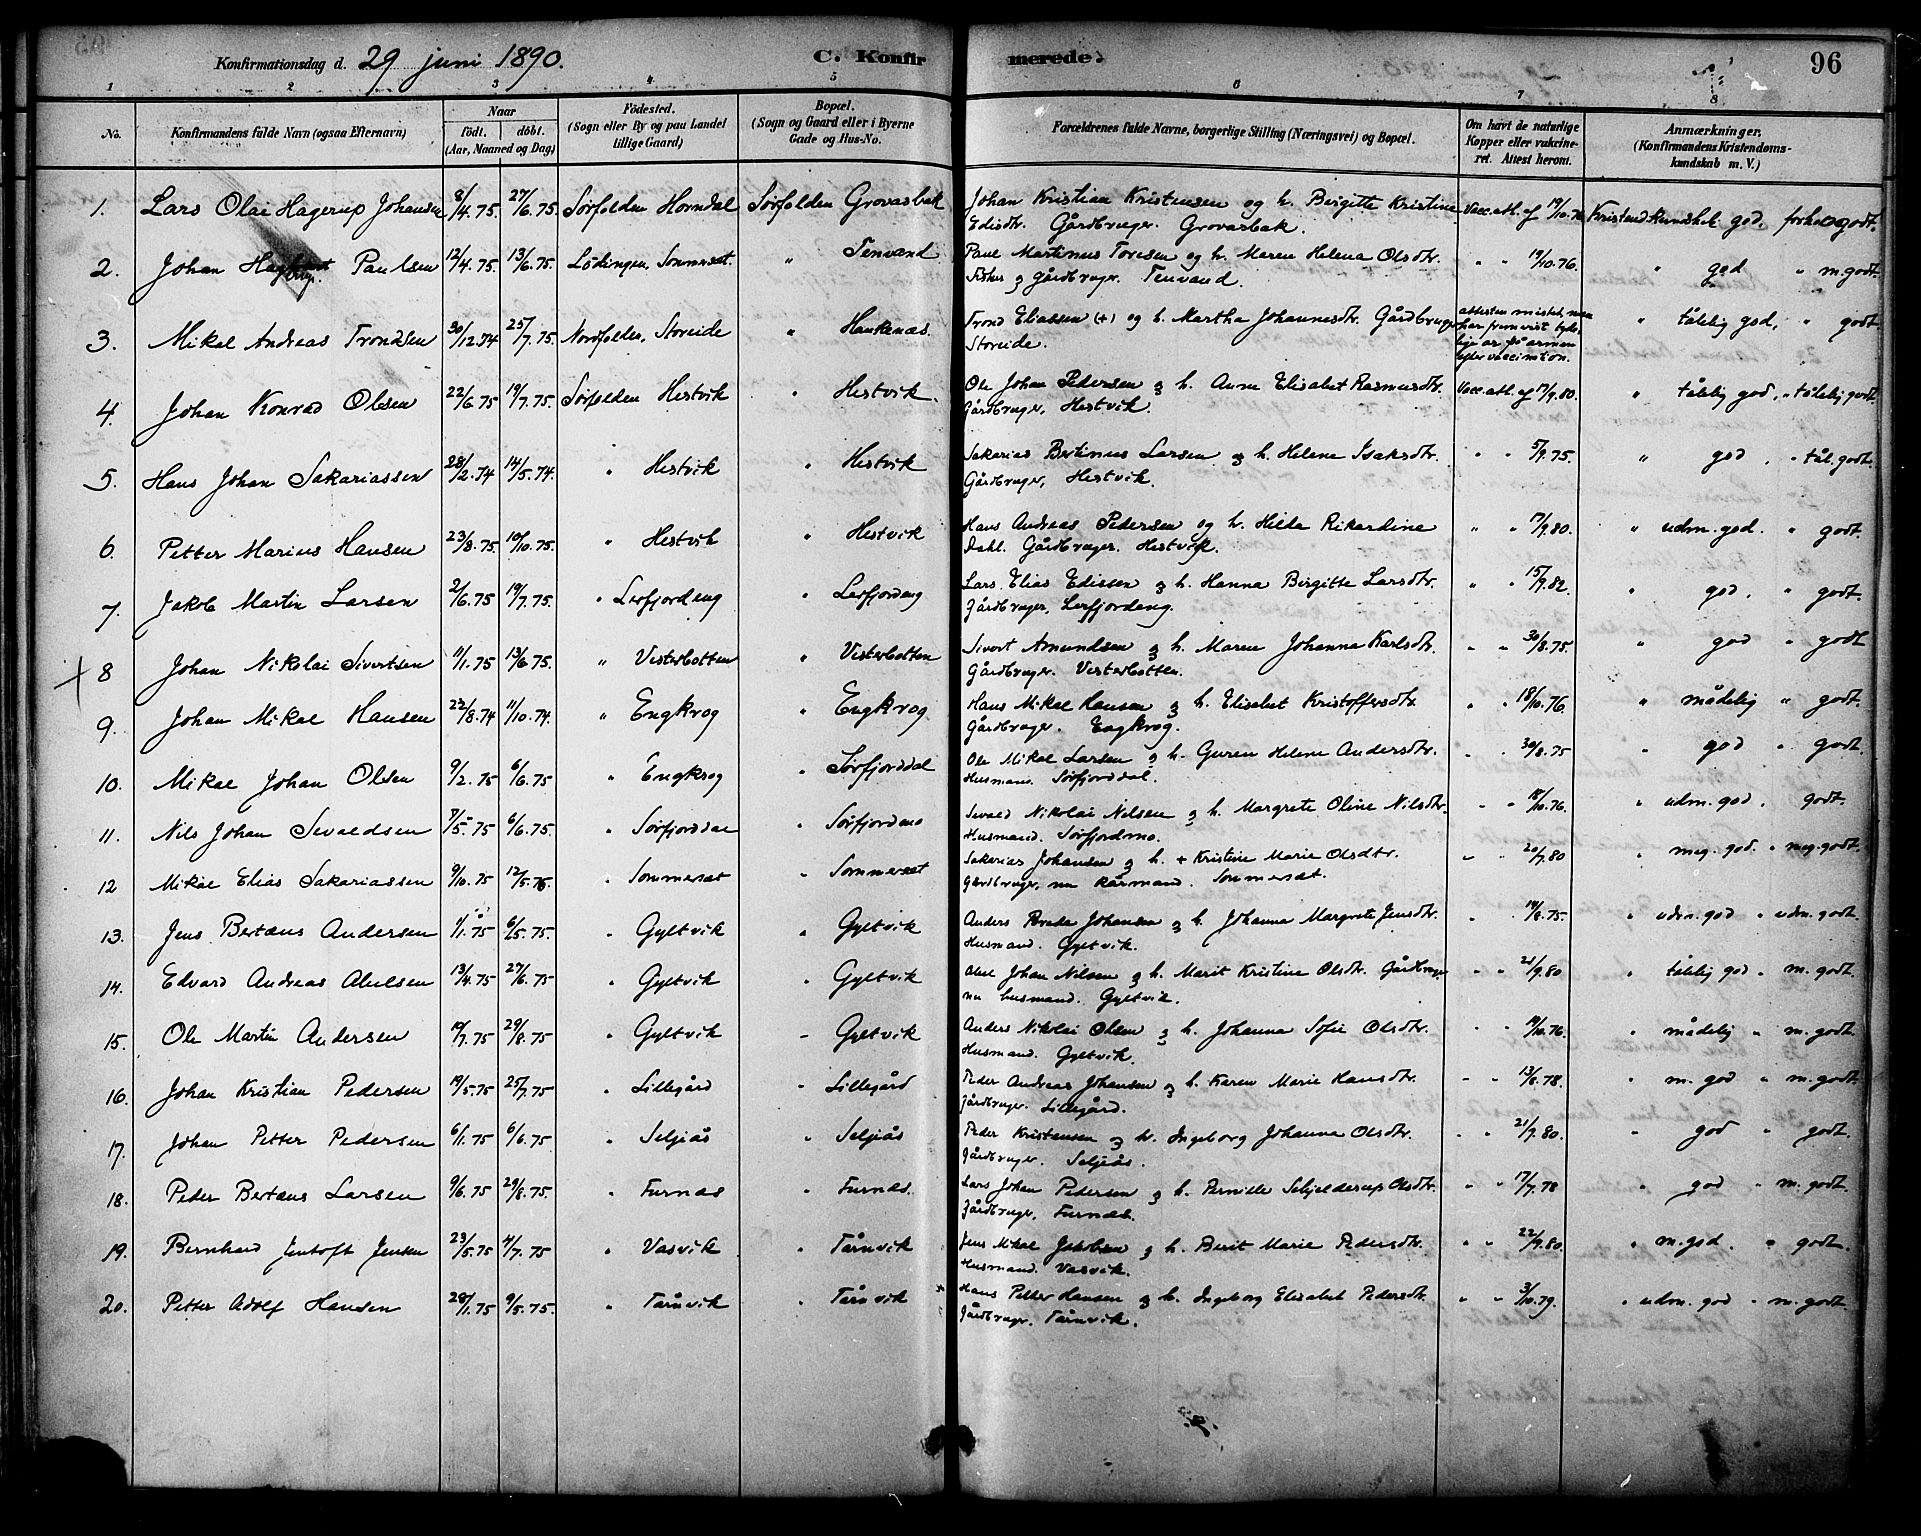 Konfirmationsdag d. 29 juni 1890. C. Konfirmerede. 96
1 2 3 4 5 6 7 8
No. Konfirmandens fulde Navn (ogsaa Efternavn) Naar født. døbt. (Aar, Maaned og Dag) Fødested. (Sogn eller By og paa Landet tillige Gaard) Bopæl. (Sogn og Gaard eller i Byerne Gade og Hus-No. Forældrenes fulde Navne, borgerlige Stilling (Næringsvei) og Bopæl. Om havt de naturlige Kopper eller vaccineret. Attest herom. Anmærkninger. (Konfirmandens Kristendomskundskab m. V.)
1. Lars Olai Hagerup Johansen 8/4.75. 27/6.75. Sørfolden Horndal Sørfolden Grovasbak Johan Kristian Kristensen og h. Birgitte Kristine Vacc.att. af 19/10.76 Kristend.kundskab god, forhold godt.
Edisdtr. Gårdbruger. Grovasbak.
2. Johan Paulsen 12/4.75. 13/6.75. Lødingen, Sommerset. " Tenvand Paul Martinus Toresen og h. Maren Helena Olsdtr. " " 19/10.76. " god " m.godt.
Fisker og gårdbruger. Tenvand.
3. Mikal Andreas Trondsen 30/12.74 25/7.75. Nordfolden, Storeide " Haukenæs. Trond Eliassen (+) og h. Martha Johannesdtr. Gårdbruger attesten mistet, men " tålelig god, " godt.
Storeide. har fremvist tydelige ar på armen efter vaccination.
4. Johan Konrad Olsen 22/6.75 19/7.75. Sørfolden Hestvik " Hestvik. Ole Johan Pedersen og h. Anne Elisabet Rasmusdtr. Vacc.att. af 17/9.80. " tålelig god, " tålelig godt.
Gårdbruger, Hestvik.
5. Hans Johan Sakariassen 28/2.74 14/5.74. " Hestvik " Hestvik Sakarias Bertinus Larsen og h. Helene Isaksdtr. " " 5/9.75. " god, " tål.godt.
Gårdbruger, Hestvik.
6. Petter Marius Hansen 23/8.75. 10/10.75. " Hestvik " Hestvik Hans Andreas Pedersen og h. Hilda Rikardine " " 17/9.80. " udm.god. " godt.
Dahl. Gårdbruger. Hestvik.
7. Jakob Martin Larsen 2/6.75 19/7.75. " Lerfjordeng " Lerfjordeng Lars Elias Edissen og h. Hanna Birgitte Larsdtr. " " 15/9.82. " god, " godt.
Gårdbruger, Lerfjordeng.
8 Johan Nikolai Sivertsen 11/1.75 13/6.75. " Vesterbotten " Vesterbotten Sivert Amundsen og h. Maren Johanna Karlsdtr. " " 30/8.75 " god " godt
Gårdbruger. Vesterbotten.
9. Johan Mikal Hansen 22/8.74 11/10.74. " Engkrog " Engkrog Hans Mikal Hansen og h. Elisabet Kristoffersdtr. " " 18/10.76. " mådelig " godt.
Gårdbruger. Engkrog.
10. Mikal Johan Olsen 9/2.75 6/6.75. " Engkrog " Sørfjorddal Ole Mikal Larsen og h. Guren Helene Andersdtr. " 30/8.75 " god " godt.
Husmand. Sørfjorddal.
11. Nils Johan Sevaldsen 7/5.75 6/6.75. " Sørfjorddal " Sørfjordmo Sevald Nikolai Nilsen og h. Margrete Oline Nilsdtr. " " 18/10.76. " udm.god. godt.
Husmand. Sørfjordmo.
12 Mikal Elias Sakariassen 9/10.75 12/5.76. " Sommerset " Sommerset Sakarias Johansen og h. + Kristine Marie Olsdtr. " " 20/9.80 " meg.god. " meg.godt.
Gårdbruger, nu kårmand. Sommerset.
13. Jens Bertæus Andersen 1/1.75 6/5.75. " Gyltvik " Gyltvik Anders Johansen og h. Johanna Margrete Jensdtr. " " 14/8.75. " udm.god " udm.godt.
Husmand. Gyltvik.
14. Edvard Andreas Abelsen 13/4.75 27/6.75 " Gyltvik " Gyltvik Abel Johan Nilsen og h. Marit Kristine Olsdtr. Gårdbruger " " 21/9.80 " tålelig god " m. godt.
nu husmand. Gyltvik.
15. Ole Martin Andersen 19/7.75 29/8.75 " Gyltvik " Gyltvik Anders Nikolai Olsen og h. Johanna Sofie Olsdtr. " " 19/10.76. " mådelig " m.godt.
Husmand. Gyltvik.
16. Johan Kristian Pedersen 19/5.75 25/7.75 " Lillegård " Lillegård Peder Andreas Johansen og h. Karen Marie Hansdtr. " " 13/8.78. " m.god " m.godt.
Gårdbruger. Lillegård.
17. Johan Petter Pedersen 6/1.75 6/6.75 " Seljeås " Seljeås Peder Kristensen og h. Ingeborg Johanna Olsdtr. " " 21/9.80. " god " godt.
Gårdbruger. Seljeås.
18. Peder Bertæus Larsen 9/6.75 29/8.75. " Furnæs " Furnæs. Lars Johan Pedersen og h. Pernille Schjelderup Olsdtr. " " 17/7.78 " god " m.godt.
Gårdbruger, Furnæs.
19. Bernhard Jentoft Jensen 23/5.75 4/7.75 " Vasvik " Tårnvik Jens Mikal Jakobsen og h. Berit Marie Pedersdtr. " " 22/9.80. " m.god. " godt.
Husmand. Vasvik.
20. Petter Adolf Hansen 28/1.75 9/5.75. " Tårnvik " Tårnvik Hans Petter Hansen og h. Ingeborg Elisabet Pedersdtr. " " 3/10.79. " udm.god " m.godt.
Gårdbruger. Tårnvik.